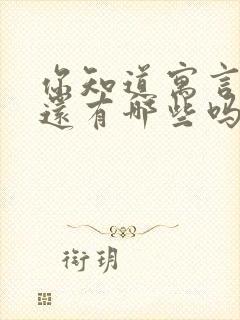 你知道寓言
還有哪些吗
衔玥